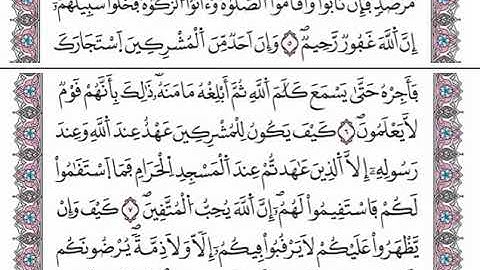 مَرْصَدٍ فَإِن تَابُوا۟ وَأَقَامُوا۟ ٱلصَّلَوٰةَ وَءَاتَوُا۟ ٱلزَّكَوٰةَ فَخَلُّوا۟ سَبِيلَهُمْ
إِنَّ ٱللَّهَ غَفُورٌ رَّحِيمٌ ٥ وَإِنْ أَحَدٌ مِّنَ ٱلْمُشْرِكِينَ ٱسْتَجَارَكَ
فَأَجِرْهُ حَتَّىٰ يَسْمَعَ كَلَٰمَ ٱللَّهِ ثُمَّ أَبْلِغْهُ مَأْمَنَهُۥ ذَٰلِكَ بِأَنَّهُمْ قَوْمٌ
لَّا يَعْلَمُونَ ٦ كَيْفَ يَكُونُ لِلْمُشْرِكِينَ عَهْدٌ عِندَ ٱللَّهِ وَعِندَ
رَسُولِهِۦٓ إِلَّا ٱلَّذِينَ عَٰهَدتُّمْ عِندَ ٱلْمَسْجِدِ ٱلْحَرَامِ فَمَا ٱسْتَقَٰمُوا۟
لَكُمْ فَٱسْتَقِيمُوا۟ لَهُمْ إِنَّ ٱللَّهَ يُحِبُّ ٱلْمُتَّقِينَ ٧ كَيْفَ وَإِن
يَظْهَرُوا۟ عَلَيْكُمْ لَا يَرْقُبُوا۟ فِيكُمْ إِلًّا وَلَا ذِمَّةً يُرْضُونَكُم